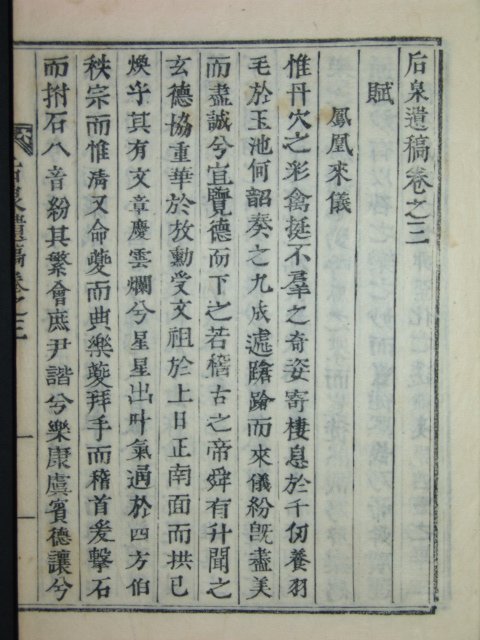 后泉遺稿卷之三
賦
鳳凰來儀
惟丹穴之彩禽挺不羣之奇姿寄棲息於千仞養羽
毛於玉池何韶奏之九成遽蹌蹌而來儀紛旣盡美
而盡誠兮宜覽德而下之若稽古之帝舜有升聞之
玄德協重華於放勳受文祖於上日正南面而拱已
煥乎其有文章慶雲爛兮星星出叶氣遍於四方伯
秩宗而惟淸又命夔而典樂夔拜手而稽首爰擊石
而拊石八音紛其繁會庶尹諧兮樂康虞賓德讓兮
后泉遺稿卷之三
一